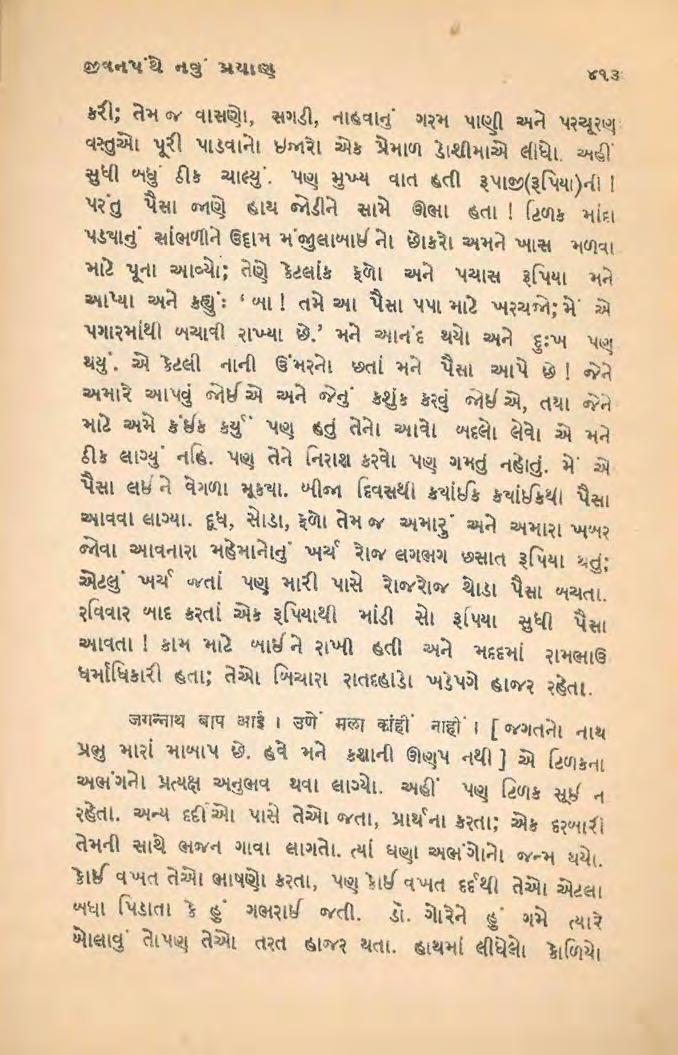 જીવનપંથે નવું પ્રયાણ ૪૧૩
કરી; તેમ જ વાસણો, સગડી, નાહવાનું ગરમ પાણી અને પરચૂરણ
વસ્તુઓ પૂરી પાડવાનો ઇજારો એક પ્રેમાળ ડોશીમાએ લીધો. અહીં
સુધી બધું ઠીક ચાલ્યું. પણ મુખ્ય વાત હતી રૂપાજી(રૂપિયા)ની !
પરંતુ પૈસા જાણે હાથ જોડીને સામે ઊભા હતા ! ટિળક માંદા
પડ્યાનું સાંભળીને ઉદ્દામ મંજુલાબાઈ નો છોકરો અમને ખાસ મળવા
માટે પૂના આવ્યો; તેણે કેટલાંક ફળો અને પચાસ રૂપિયા મને
આપ્યા અને કહ્યું: ‘ બા ! તમે આ પૈસા પપા માટે ખરચજો; મેં એ
પગારમાંથી બચાવી રાખ્યા છે.’ મને આનંદ થયો અને દુઃખ પણ
થયું. એ કેટલી નાની ઉંમરનો છતાં મને પૈસા આપે છે ! જેને
અમારે આપવું જોઈએ અને જેનું કશુંક કરવું જોઈએ, તથા જેને
માટે અમે કંઈક કર્યું પણ હતું તેનો આવો બદલો લેવો એ મને
ઠીક લાગ્યું નહિ. પણ તેને નિરાશ કરવો પણ ગમતું નહોતું. મેં એ
પૈસા લઈ ને વેગળા મૂક્યા. બીજા દિવસથી ક્યાંઈક ક્યાંઈકથી પૈસા
આવવા લાગ્યા. દૂધ, સોડા, ફળો તેમ જ અમારું અને અમારા ખબર
જોવા આવનારા મહેમાનોનું ખર્ચ રોજ લગભગ છસાત રૂપિયા થતું;
એટલું ખર્ચ જતાં પણ મારી પાસે રોજરોજ થોડા પૈસા બચતા.
રવિવાર બાદ કરતાં એક રૂપિયાથી માંડી સો રૂપિયા સુધી પૈસા
આવતા ! કામ માટે બાઈ ને રાખી હતી અને મદદમાં રામભાઉ
ધર્માધિકારી હતા; તેઓ બિચારા રાતદહાડો ખડેપગે હાજર રહેતા.
जगन्नाथ बाप आई । उणें मला कांहीं नाहीं । [ જગતનો નાથ
પ્રભુ મારાં માબાપ છે. હવે મને કશાની ઊણપ નથી ] એ ટિળકના
અભંગનો પ્રત્યક્ષ અનુભવ થવા લાગ્યો. અહીં પણ ટિળક સૂઈ ન
રહેતા. અન્ય દર્દીઓ પાસે તેઓ જતા, પ્રાર્થના કરતા; એક દરબારી
તેમની સાથે ભજન ગાવા લાગતો. ત્યાં ઘણા અભંગોનો જન્મ થયો.
કોઈ વખત તેઓ ભાષણો કરતા, પણ કોઈ વખત દર્દથી તેઓ એટલા
બધા પિડાતા કે હું ગભરાઈ જતી. ડૉ. ગોરેને હું ગમે ત્યારે
બોલાવું તોપણ તેઓ તરત હાજર થતા. હાથમાં લીધેલો કોળિયો